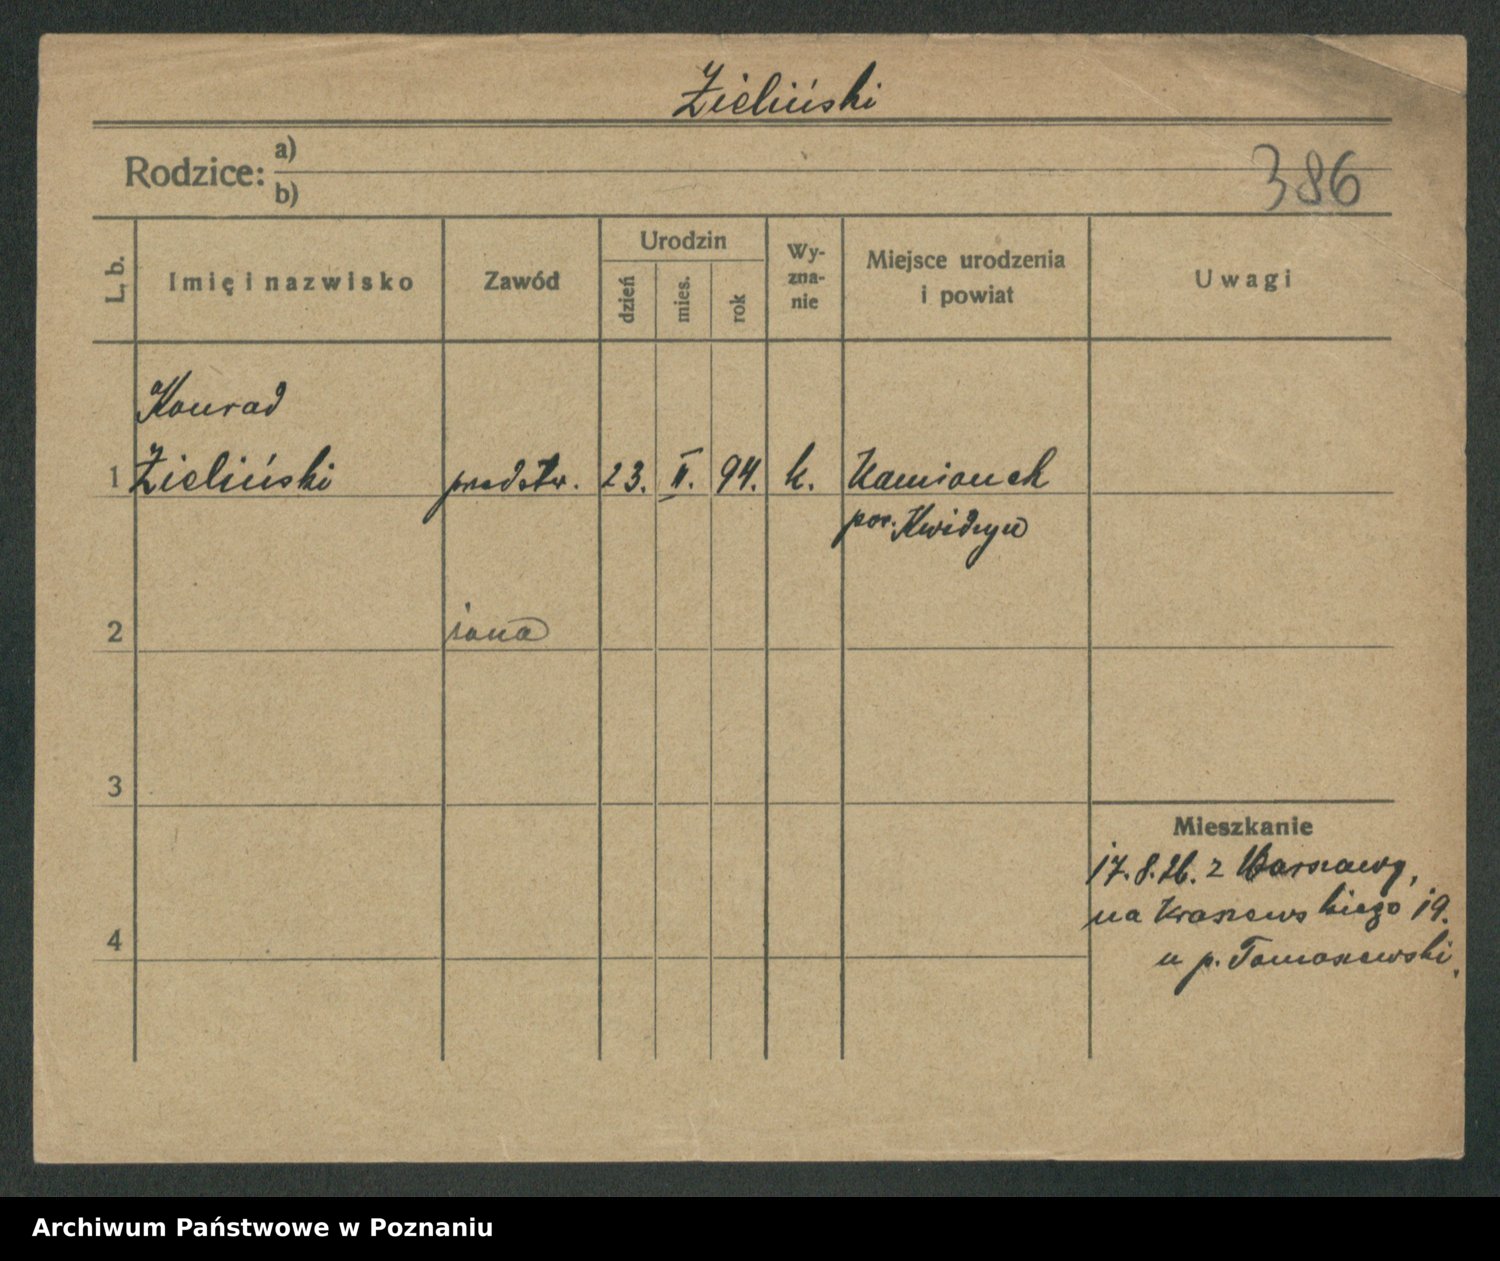 Zieliński
Rodzice: a)
b)
386
L. b.
Imię i nazwisko
Zawód
Urodzin
dzień
mies.
rok
Wy-
zna-
nie
Miejsce urodzenia
i powiat
Uwagi
Konrad
1 Zieliński przedstw. 23. II. 94. k. Kamionek
pow. Kwidzyn
2 żona
3
Mieszkanie
17.8.26. z Warszawy,
na Kraszewskiego 19.
4
u p. Tomaszewski.
Archiwum Państwowe w Poznaniu